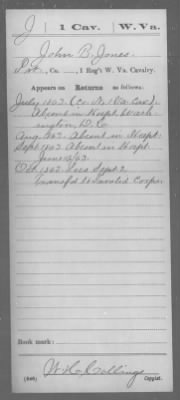 J 1 Cav. W. Va.
John B. Jones
Pvt., Co. , 1 Reg't W. Va. Cavalry.
Appears on
Returns as follows:
July 1863 (Co. 1 Va. Cav.)
Absent in Hospt. Wash-
ington, D.C.
Aug 1863 Absent in Hospt.
Sept 1863 Absent in Hospt.
June 12/63.
Oct 1863 Loss Sept 2
Transf'd to Invalid Corps.
Book mark:
W. H. Collings
(546) Copyist.